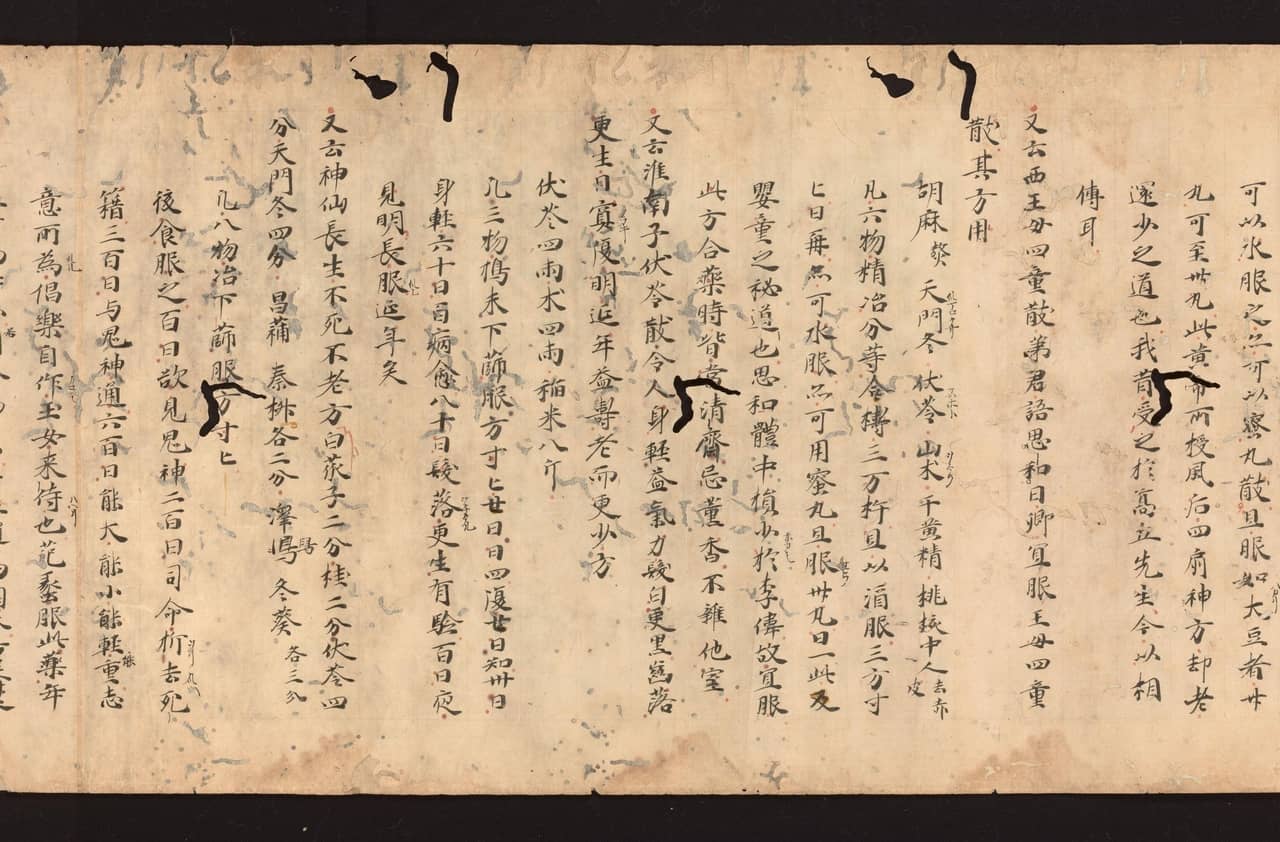 可以水服之亦可以蜜丸散旦服如大豆者廿
丸可至卅丸此黄帝所授風后四扇神方却老
還少之道也我昔受之於高丘先生今以相
傳耳
又云西王母四童散第君語思和曰卿宜服王母四童
散其方用
胡麻熬 天門冬 伏苓 山朮 干黄精 桃核中人去赤皮
凡六物精冶分等合擣三万杵旦以酒服三方寸
匕日再亦可水服亦可用蜜丸旦服卅丸日一此反
嬰童之秘道也思和體中損少於李偉故宜服
此方合藥時皆當清齋忌薫香不雜他室
又云淮南子伏苓散令人身輕益氣力髮白更黒齒落
更生目冥復明延年益壽老而更少方
伏苓四兩 朮四兩 稲米八斤
凡三物擣末下篩服方寸匕廿日日四復廿日知卅日
身輕六十日百病愈八十日髮落更生有驗百日夜
見明長服延年矣
又云神仙長生不死不老方白苽子二分桂二分伏苓四
分天門冬四分 昌蒲 秦椒各二分 澤寫 冬葵各三分
凡八物冶下篩服方寸匕
後食服之百日欲見鬼神二百日司命折去死
籍三百日与鬼神通六百日能大能小能輕重志
意所為倡樂自作玉女来侍也范蠡服此藥年